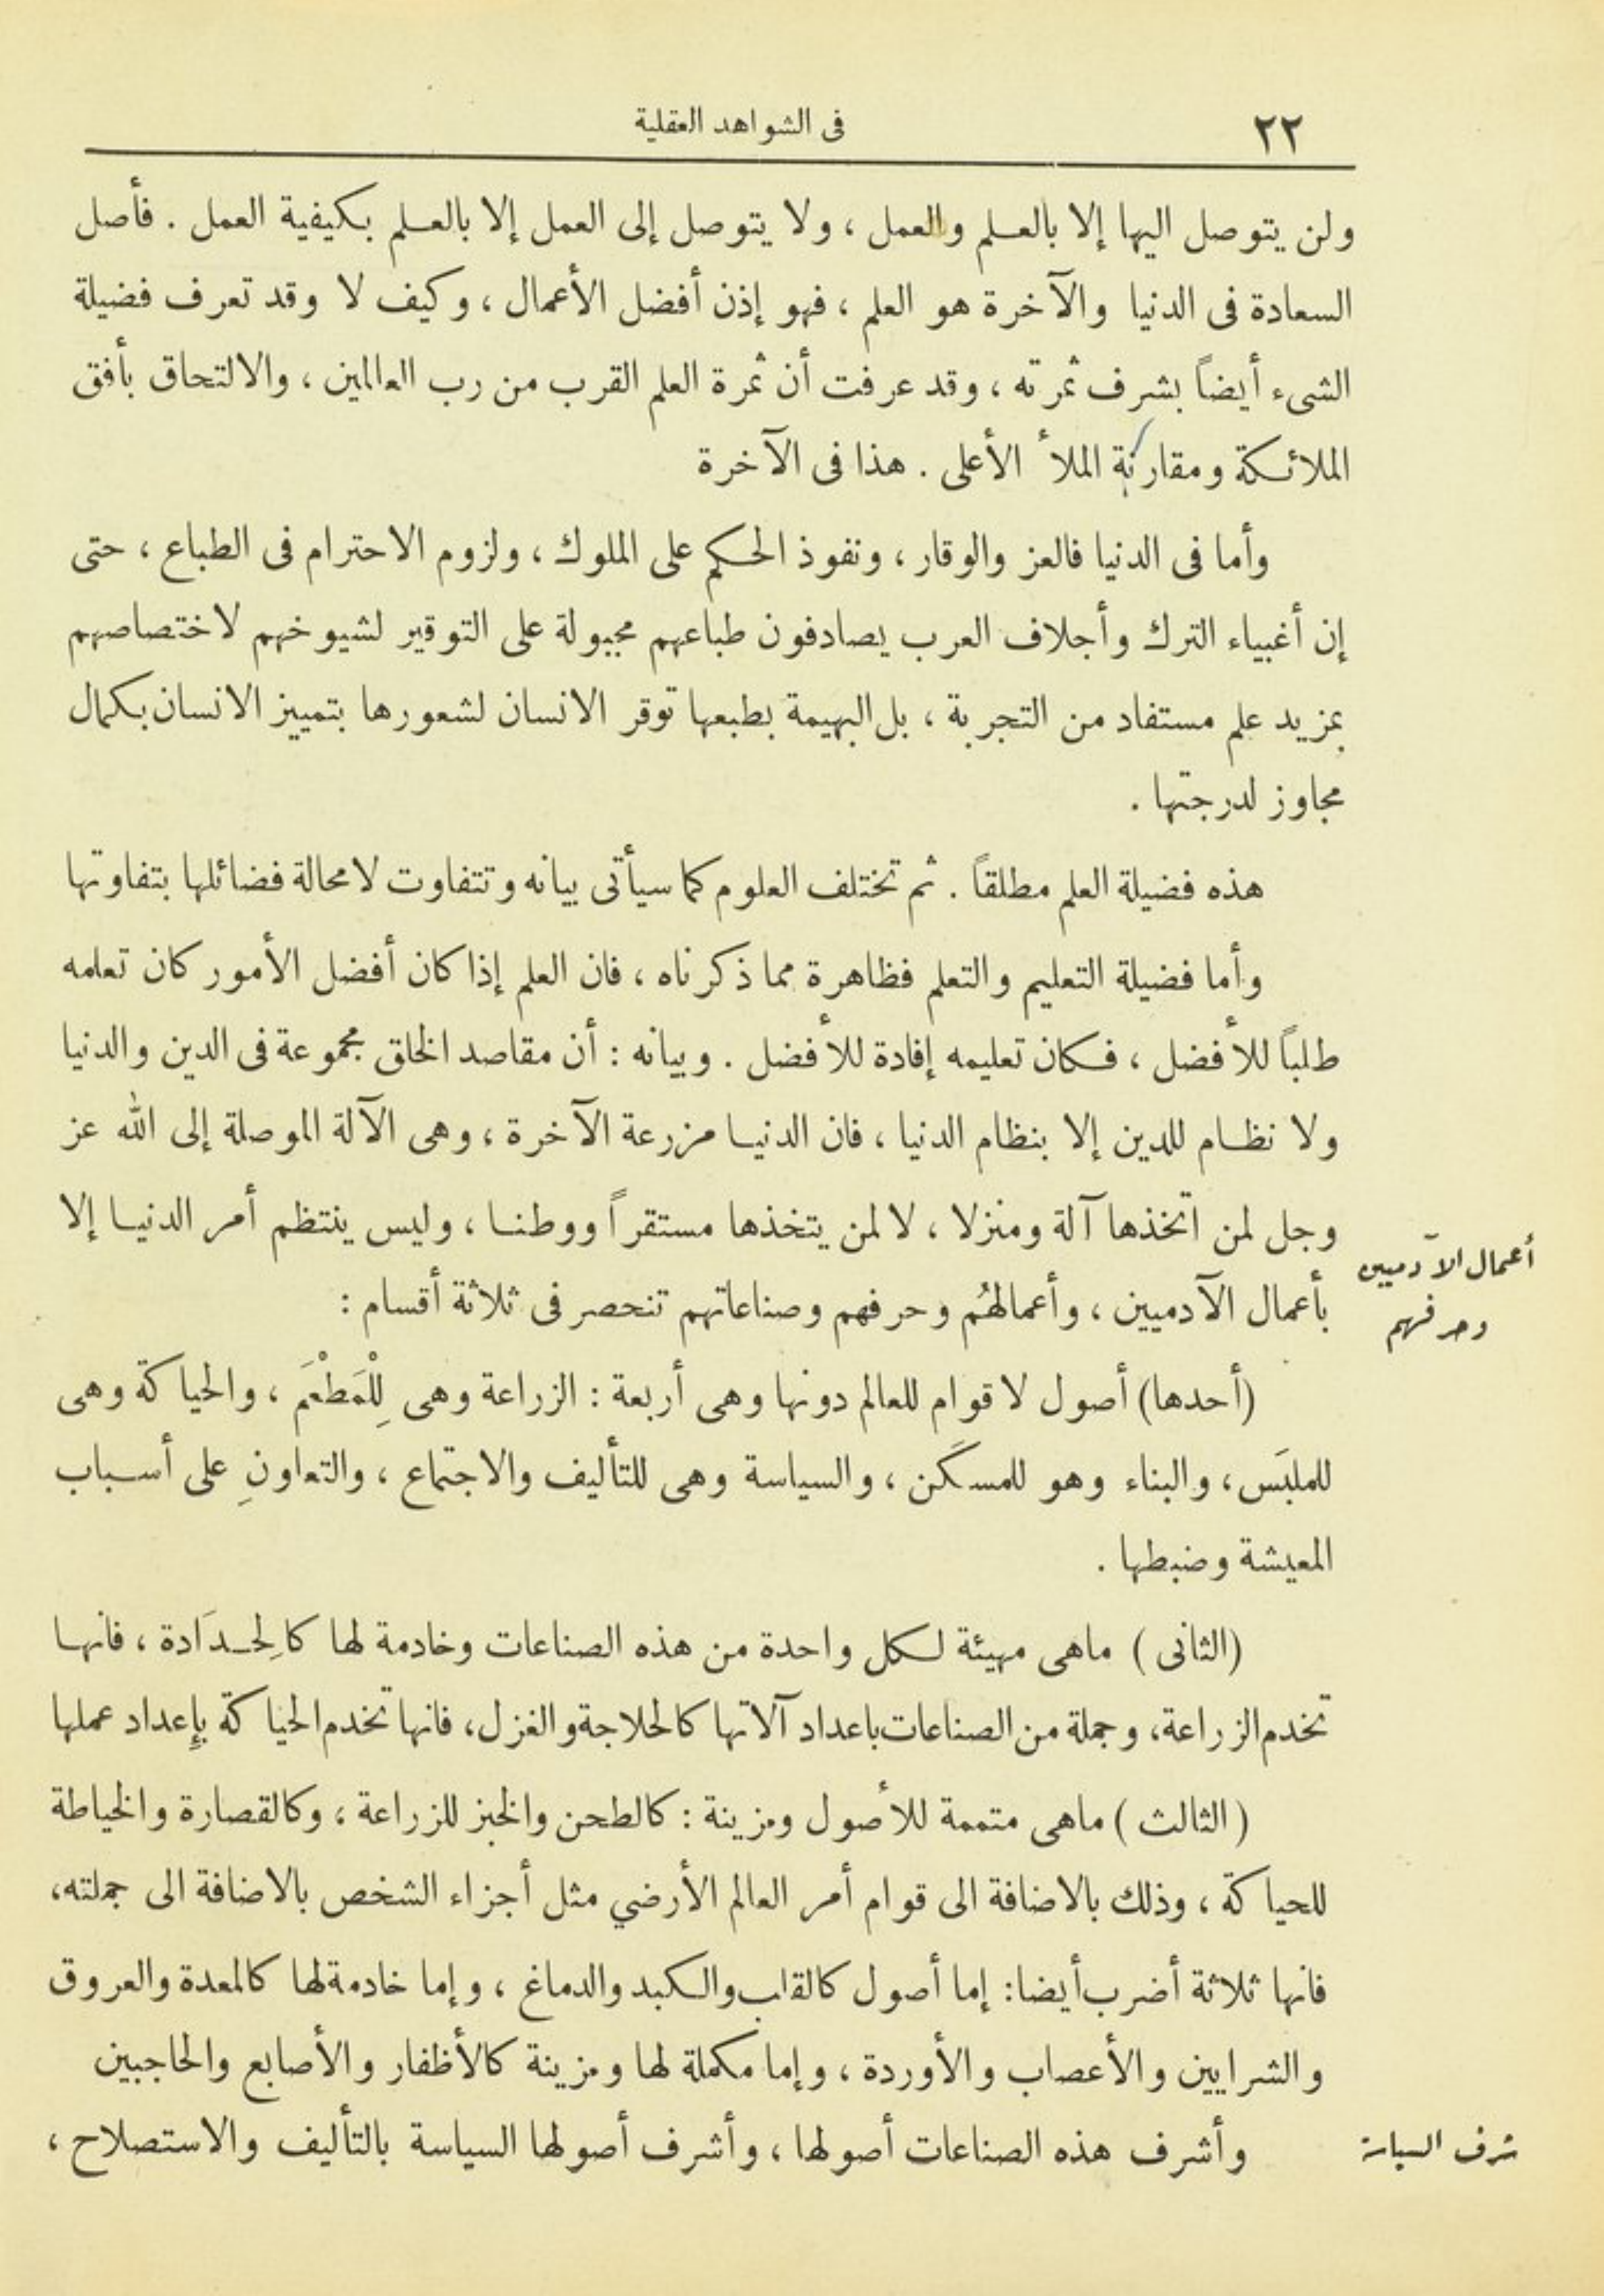 ٢٢
فى الشواهد العقلية
ولن يتوصل اليها إلا بالعلم والعمل ، ولا يتوصل إلى العمل إلا بالعلم بكيفية العمل . فأصل
السعادة فى الدنيا والآخرة هو العلم ، فهو إذن أفضل الأعمال ، وكيف لا وقد تعرف فضيلة
الشىء أيضاً بشرف ثمرته ، وقد عرفت أن ثمرة العلم القرب من رب العالمين ، والالتحاق بأفق
الملائكة ومقارنة الملأ الأعلى . هذا فى الآخرة
وأما فى الدنيا فالعز والوقار ، ونفوذ الحكم على الملوك ، ولزوم الاحترام فى الطباع ، حتى
إن أغبياء الترك وأجلاف العرب يصادفون طباعهم مجبولة على التوقير لشيوخهم لاختصاصهم
بمزيد علم مستفاد من التجربة ، بل البهيمة بطبعها توقر الانسان لشعورها بتمييز الانسان بكمال
مجاوز لدرجتها .
هذه فضيلة العلم مطلقاً . ثم تختلف العلوم كما سيأتى بيانه وتتفاوت لا محالة فضائلها بتفاوتها
وأما فضيلة التعليم والتعلم فظاهرة مما ذكرناه ، فان العلم إذا كان أفضل الأمور كان تعلمه
طلباً للأفضل ، فكان تعليمه إفادة للأفضل . وبيانه : أن مقاصد الخلق مجموعة فى الدين والدنيا
ولا نظام للدين إلا بنظام الدنيا ، فان الدنيا مزرعة الآخرة ، وهى الآلة الموصلة إلى الله عز
وجل لمن اتخذها آلة ومنزلا ، لا لمن يتخذها مستقراً ووطنا ، وليس ينتظم أمر الدنيا إلا
أعمال الآدميين
وحرفهم
بأعمال الآدميين ، وأعمالهُم وحرفهم وصناعاتهم تنحصر فى ثلاثة أقسام :
(أحدها) أصول لا قوام للعالم دونها وهى أربعة : الزراعة وهى لِلْمَطْعَم ، والحياكة وهى
للملبَس ، والبناء وهو للمسكَن ، والسياسة وهى للتأليف والاجتماع ، والتعاونِ على أسباب
المعيشة وضبطها .
(الثانى) ماهى مهيئة لكل واحدة من هذه الصناعات وخادمة لها كالِحدَادة ، فانها
تخدم الزراعة، وجملة من الصناعات باعداد آلاتها كالحلاجة والغزل، فانها تخدم الحياكة بإِعداد عملها
(الثالث) ماهى متممة للأصول ومزينة : كالطحن والخبز للزراعة ، وكالقصارة والخياطة
للحياكة ، وذلك بالاضافة الى قوام أمر العالم الأرضي مثل أجزاء الشخص بالاضافة الى جملته،
فانها ثلاثة أضرب أيضا: إما أصول كالقلب والكبد والدماغ ، وإما خادمة لها كالمعدة والعروق
والشرايين والأعصاب والأوردة ، وإما مكملة لها ومزينة كالأظفار والأصابع والحاجبين
شرف السياسة
وأشرف هذه الصناعات أصولها ، وأشرف أصولها السياسة بالتأليف والاستصلاح ،